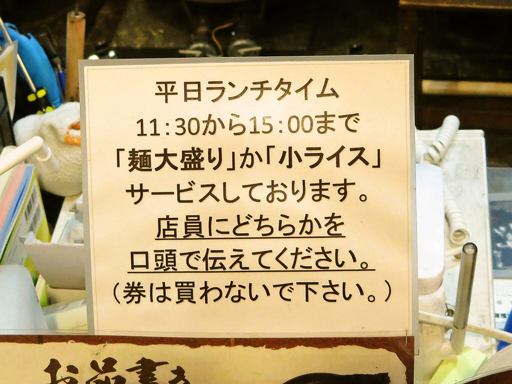 平日ランチタイム
11:30から15:00まで
「麺大盛り」か「小ライス」
サービスしております。
店員にどちらかを
口頭で伝えてください。
（券は買わないで下さい。）
お品書き